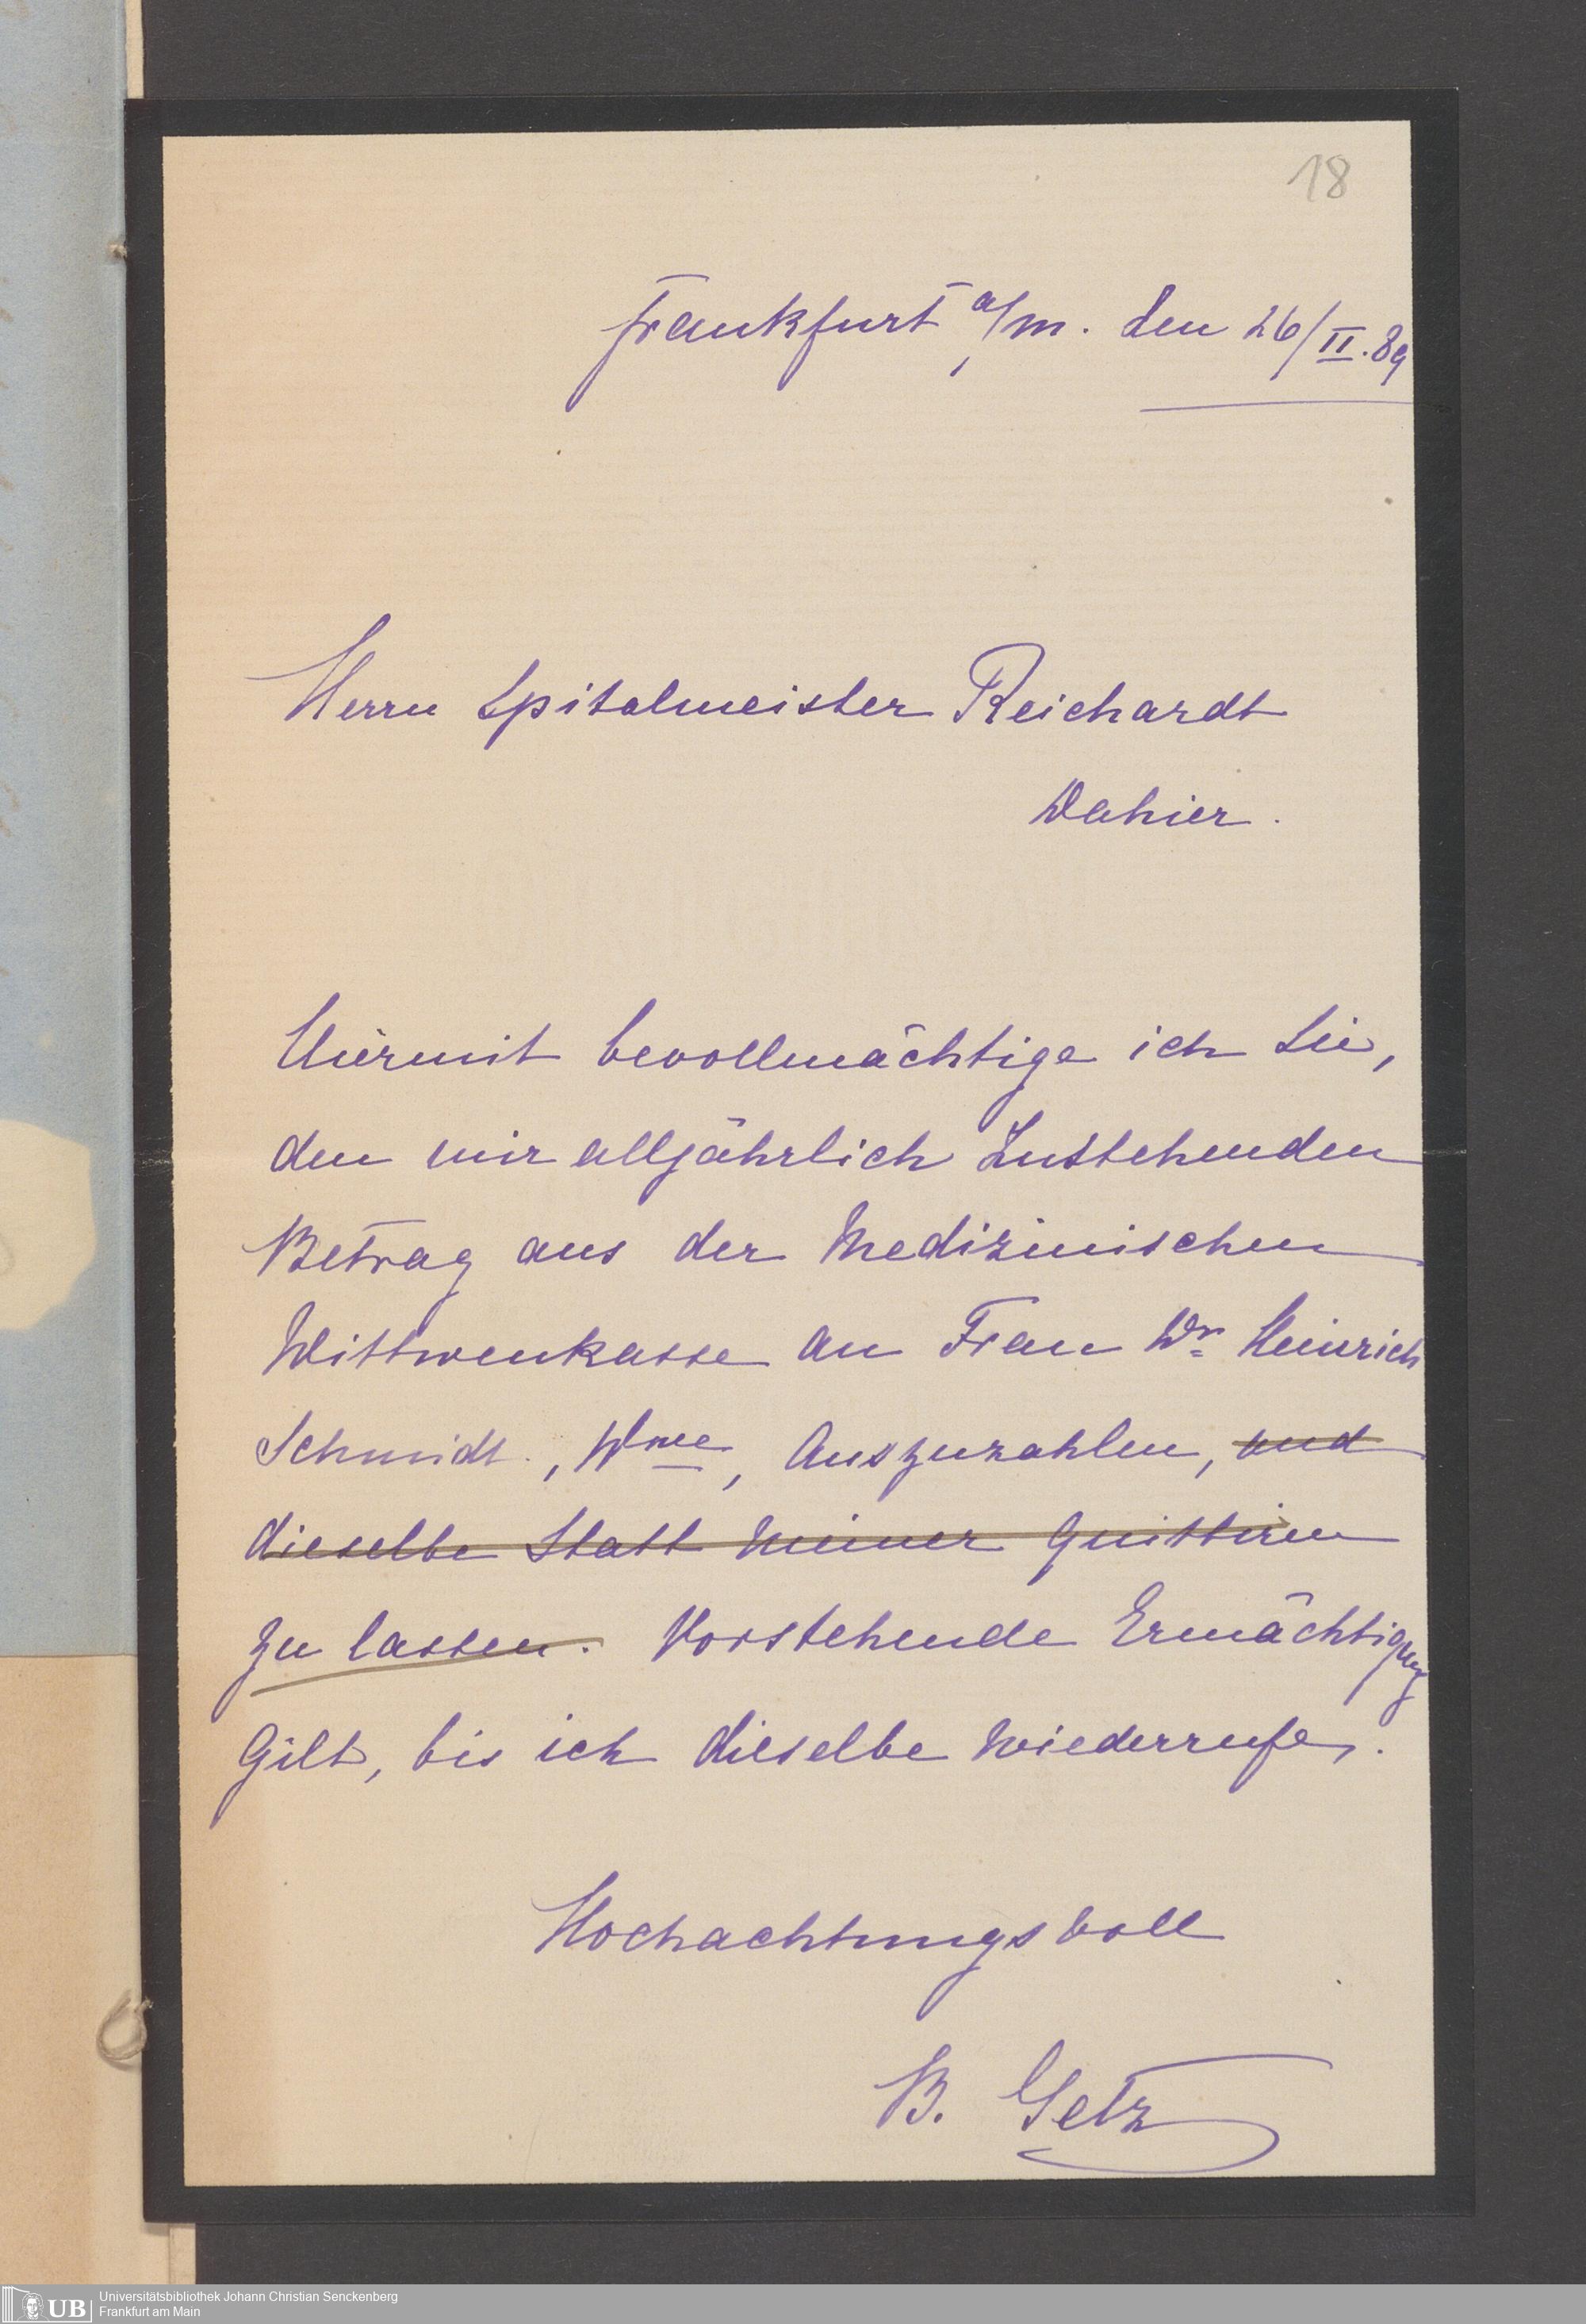 18
Frankfurt a/m. den 26/II.89
Herrn Spitalmeister Reichardt
Dahier.
Hiermit bevollmächtige ich Sie,
den mir alljährlich Zustehenden
Betrag aus der Medizinischen
Wittwenkasse an Frau Dr Heinrich
Schmidt., Wwe, Auszuzahlen, und
dieselbe Statt Meiner Quittiren
zu lassen. Vorstehende Ermächtigung
Gilt, bis ich dieselbe Wiederrufe.
Hochachtungsvoll
B. Getz
UB
Universitätsbibliothek Johann Christian Senckenberg
Frankfurt am Main